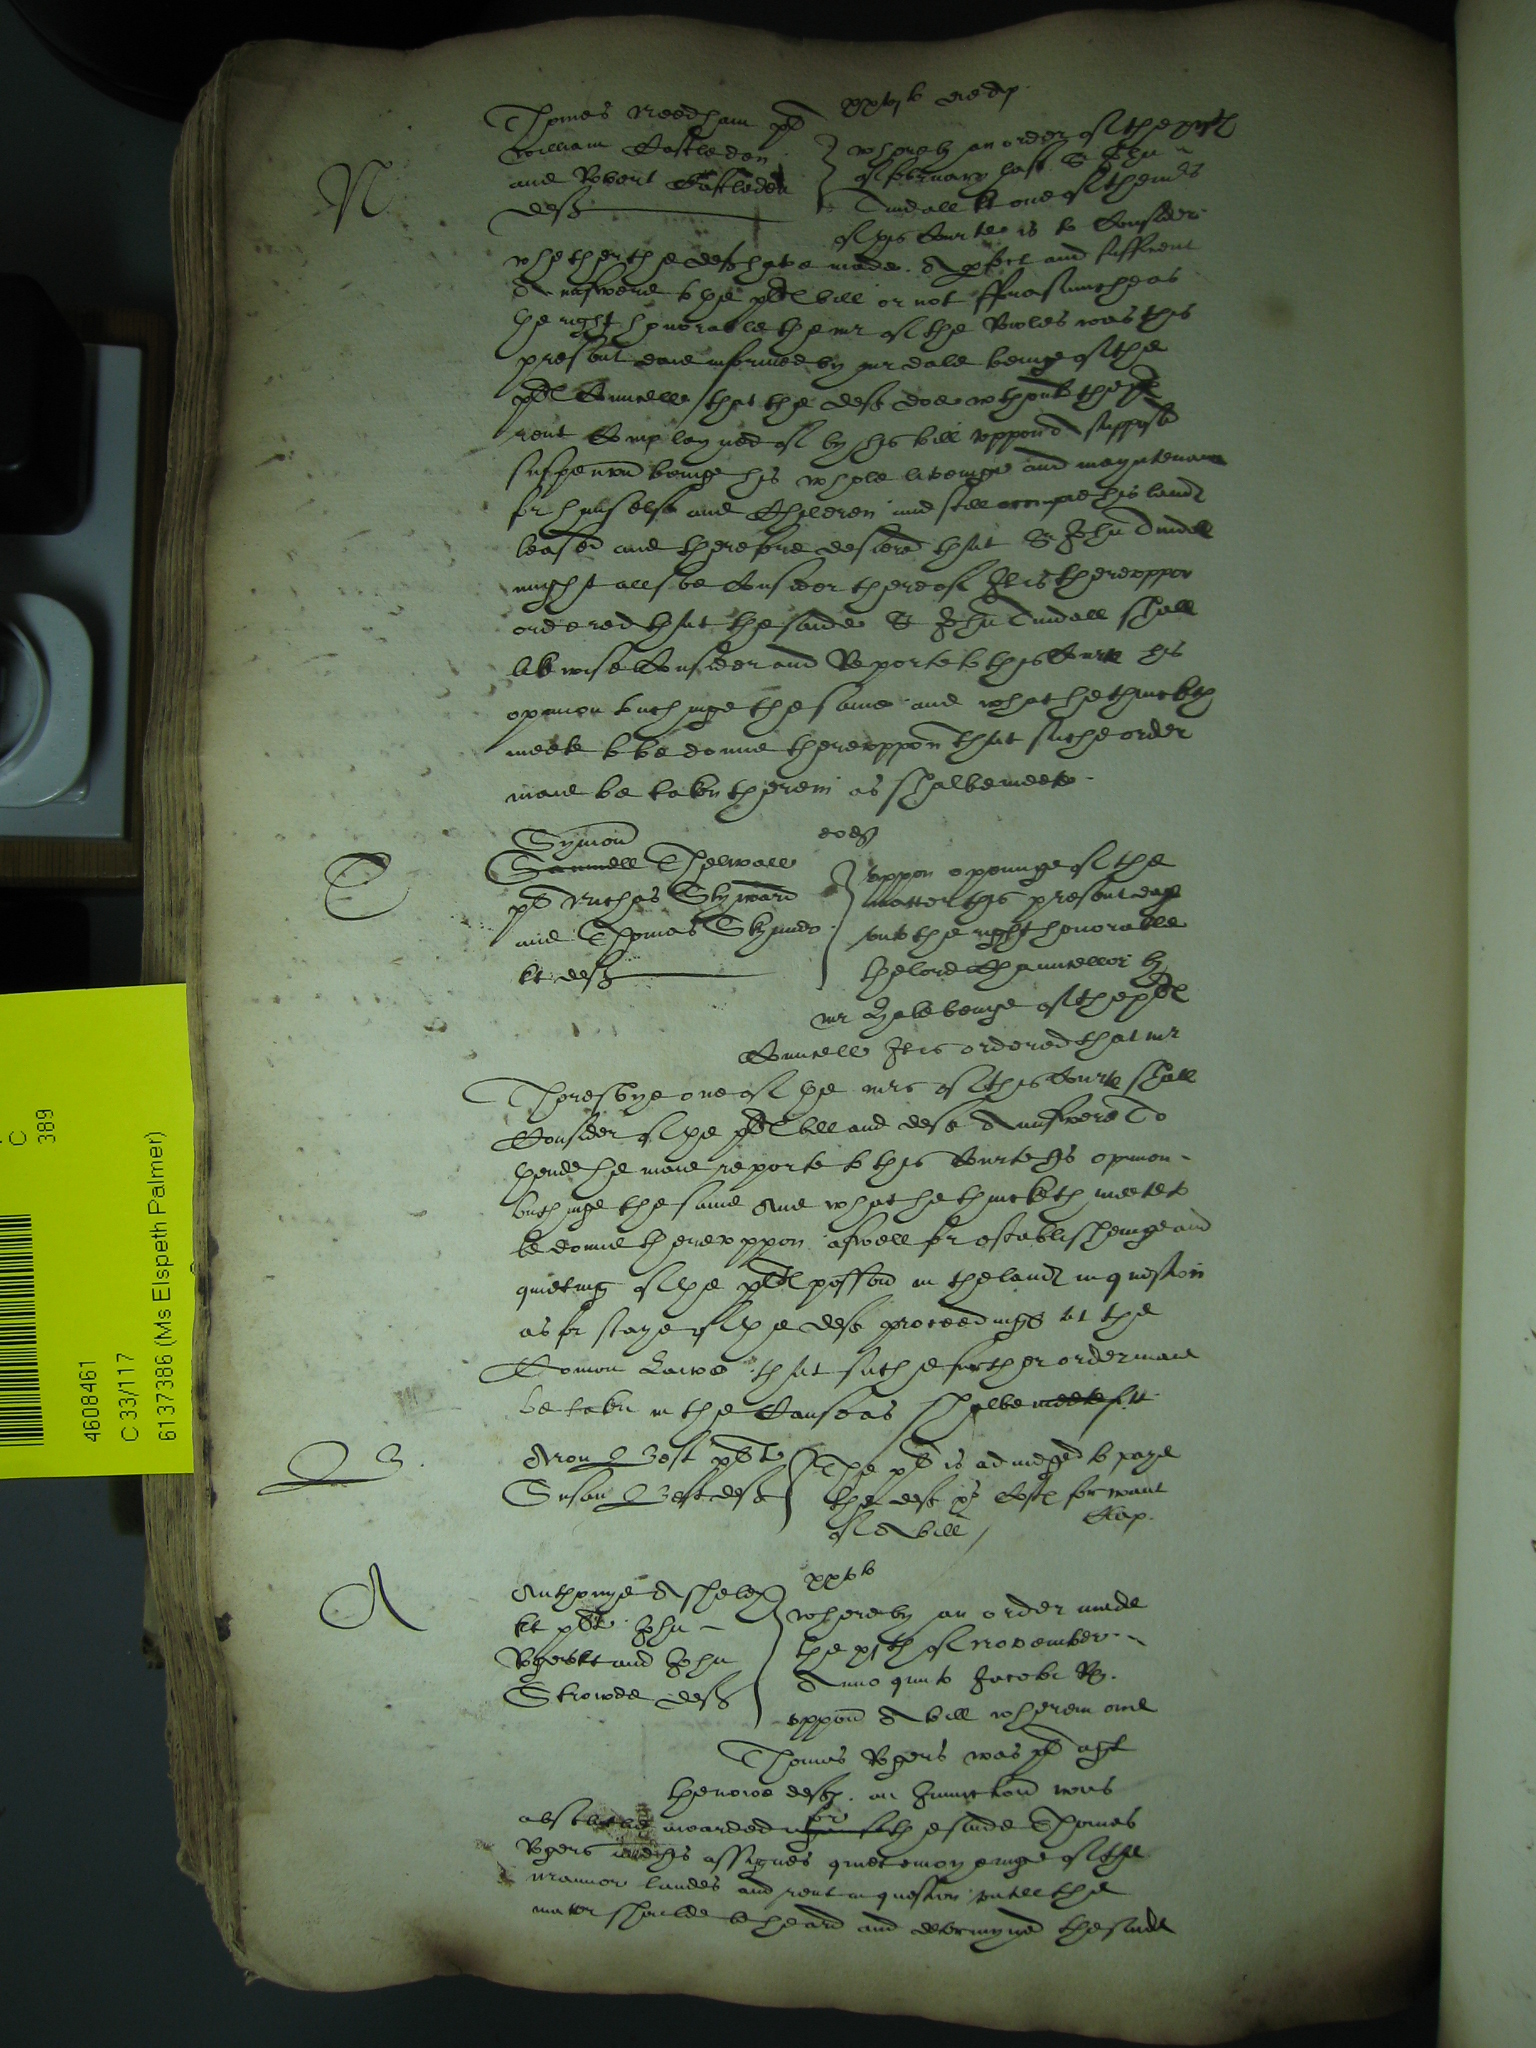 Thomas Needham pl
William Castleden
and Robert Castleden
deftes
N
whereby an order of the
of february last Sr John
Tindall kt one of the mrs
of this Courte is to Consider
whether the deftes have made A perfect and sufficient
Answere to the pltes bill or not fforasmuche as
the right honorable the mr of the Rowles was this
present daie informed by mr dale beinge of the
pltes Councell that the deftes doe withould the
rent Complayned of by his bill uppon A supposed
suspencion beinge his whole liveinge and mayntenance
for himselfe and Children and still occupie his landes
leased and therefore desiered that Sr John Tindall
might allsoe Consider thereof It is thereuppon
ordered that the saide Sr John Tindall shall
likewise Consider and Reporte to this Courte his
opinion touchinge the same and what he thincketh
meete to be donne thereuppon that suche order
maie be taken therein as shalbe meete
Symon
Samuell Thelwall
pl Nichas Skynard
and Thomas Skynner
kt deftes
eodem
uppon openinge of the
matter this present daye
unto the right honorable
the lord Chauncellor by
mr Hale beinge of the pltes
Councell It is ordered that mr
Thoresbye one of the mrs of this Courte shall
Consider of the pltes bill and deftes Aunswere To
thend he maie reporte to this Courte his opinion
touchinge the same And what he thincketh meete to
be donne thereuppon aswell for establisheinge and
quieting of the pltes possession in the landes in question
as for staye of the deftes proceedinges at the
Comon Lawe that suche further order maie
be taken in the Cause as shalbe meete fitt
B
Aron Best plt
Susan Best deft
The plt is adiudged to paye
the deft Costes for want
of A bill
Cap.
A
Anthonye Asheley
kt plt John
Rogers kt and John
Strowde deftes
whereby an order made
the xjth of November
Anno quinto Jacobi Rs.
uppon A bill wherein one
Thomas Rogers was pl agt
the nowe deftes an Iniunction was
absolutelie awarded for the saide Thomas
Rogers and his assignes quiet enioyeinge of the
mannor landes and rent in question untill the
matter shoulde be heard and determyned the saide
4608461
C 33/117
6137386 (Ms Elspeth Palmer)
C
389